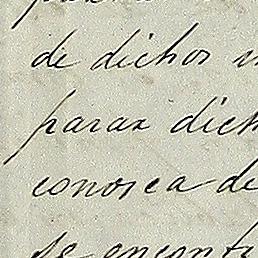 de dichos
parar dich
conosca de
se encontr